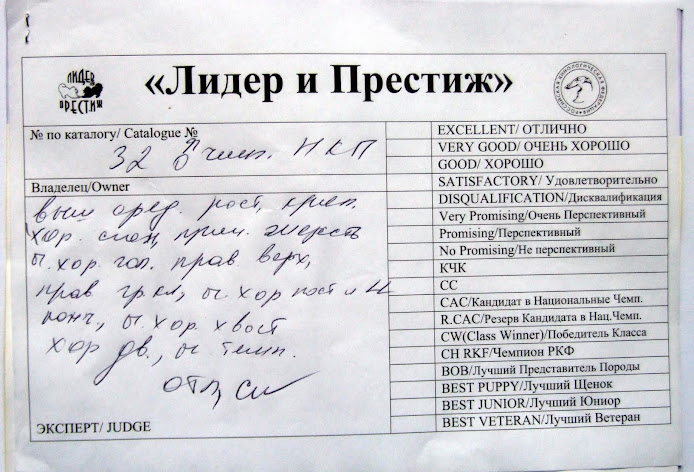 ЛИДЕР
ПРЕСТИЖ
«Лидер и Престиж»
РОССИЙСКАЯ КИНОЛОГИЧЕСКАЯ ФЕДЕРАЦИЯ
№ по каталогу/ Catalogue №
32 чемп. НКП
Владелец/Owner
выш сред. рост, креп.
хор. слож, прил. шерсть
о. хор. гол. прав верх,
прав гр кл, о. хор пост и
конч, о. хор. хвост
хор дв., о. темп.
отл,
ЭКСПЕРТ/ JUDGE
EXCELLENT/ ОТЛИЧНО
VERY GOOD/ ОЧЕНЬ ХОРОШО
GOOD/ ХОРОШО
SATISFACTORY/ Удовлетворительно
DISQUALIFICATION/Дисквалификация
Very Promising/Очень Перспективный
Promising/Перспективный
No Promising/Не перспективный
КЧК
СС
CAC/Кандидат в Национальные Чемп.
R.CAC/Резерв Кандидата в Нац.Чемп.
CW(Class Winner)/Победитель Класса
CH RKF/Чемпион РКФ
BOB/Лучший Представитель Породы
BEST PUPPY/Лучший Щенок
BEST JUNIOR/Лучший Юниор
BEST VETERAN/Лучший Ветеран